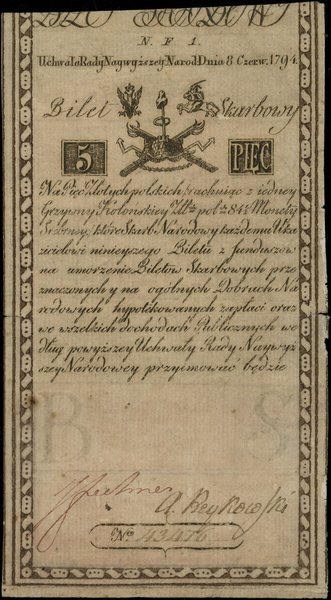 N. F 1.
Uchwała Rady Naywyższey Narod: Dnia 8 Czerw. 1794.
Bilet Skarbowy
5 PIĘC
Na Pięć Złotych polskich rachuiąc z iedney
Grzywny Kolońskiey Złł. pol. 84½ Monety
Srebrney, które Skarb Narodowy każdemu Oka
zicielowi ninieyszego Biletu z funduszów
na umorzenie Biletów Skarbowych prze
znaczonych y na ogólnych Dobrach Na
rodowych hypotekowanych zapłaci oraz
we wszelkich dochodach Publicznych we
dług powyższey Uchwały Rady Naywyż
szey Narodowey przyimować będzie
B S
A. Reykowski
Nro 43416